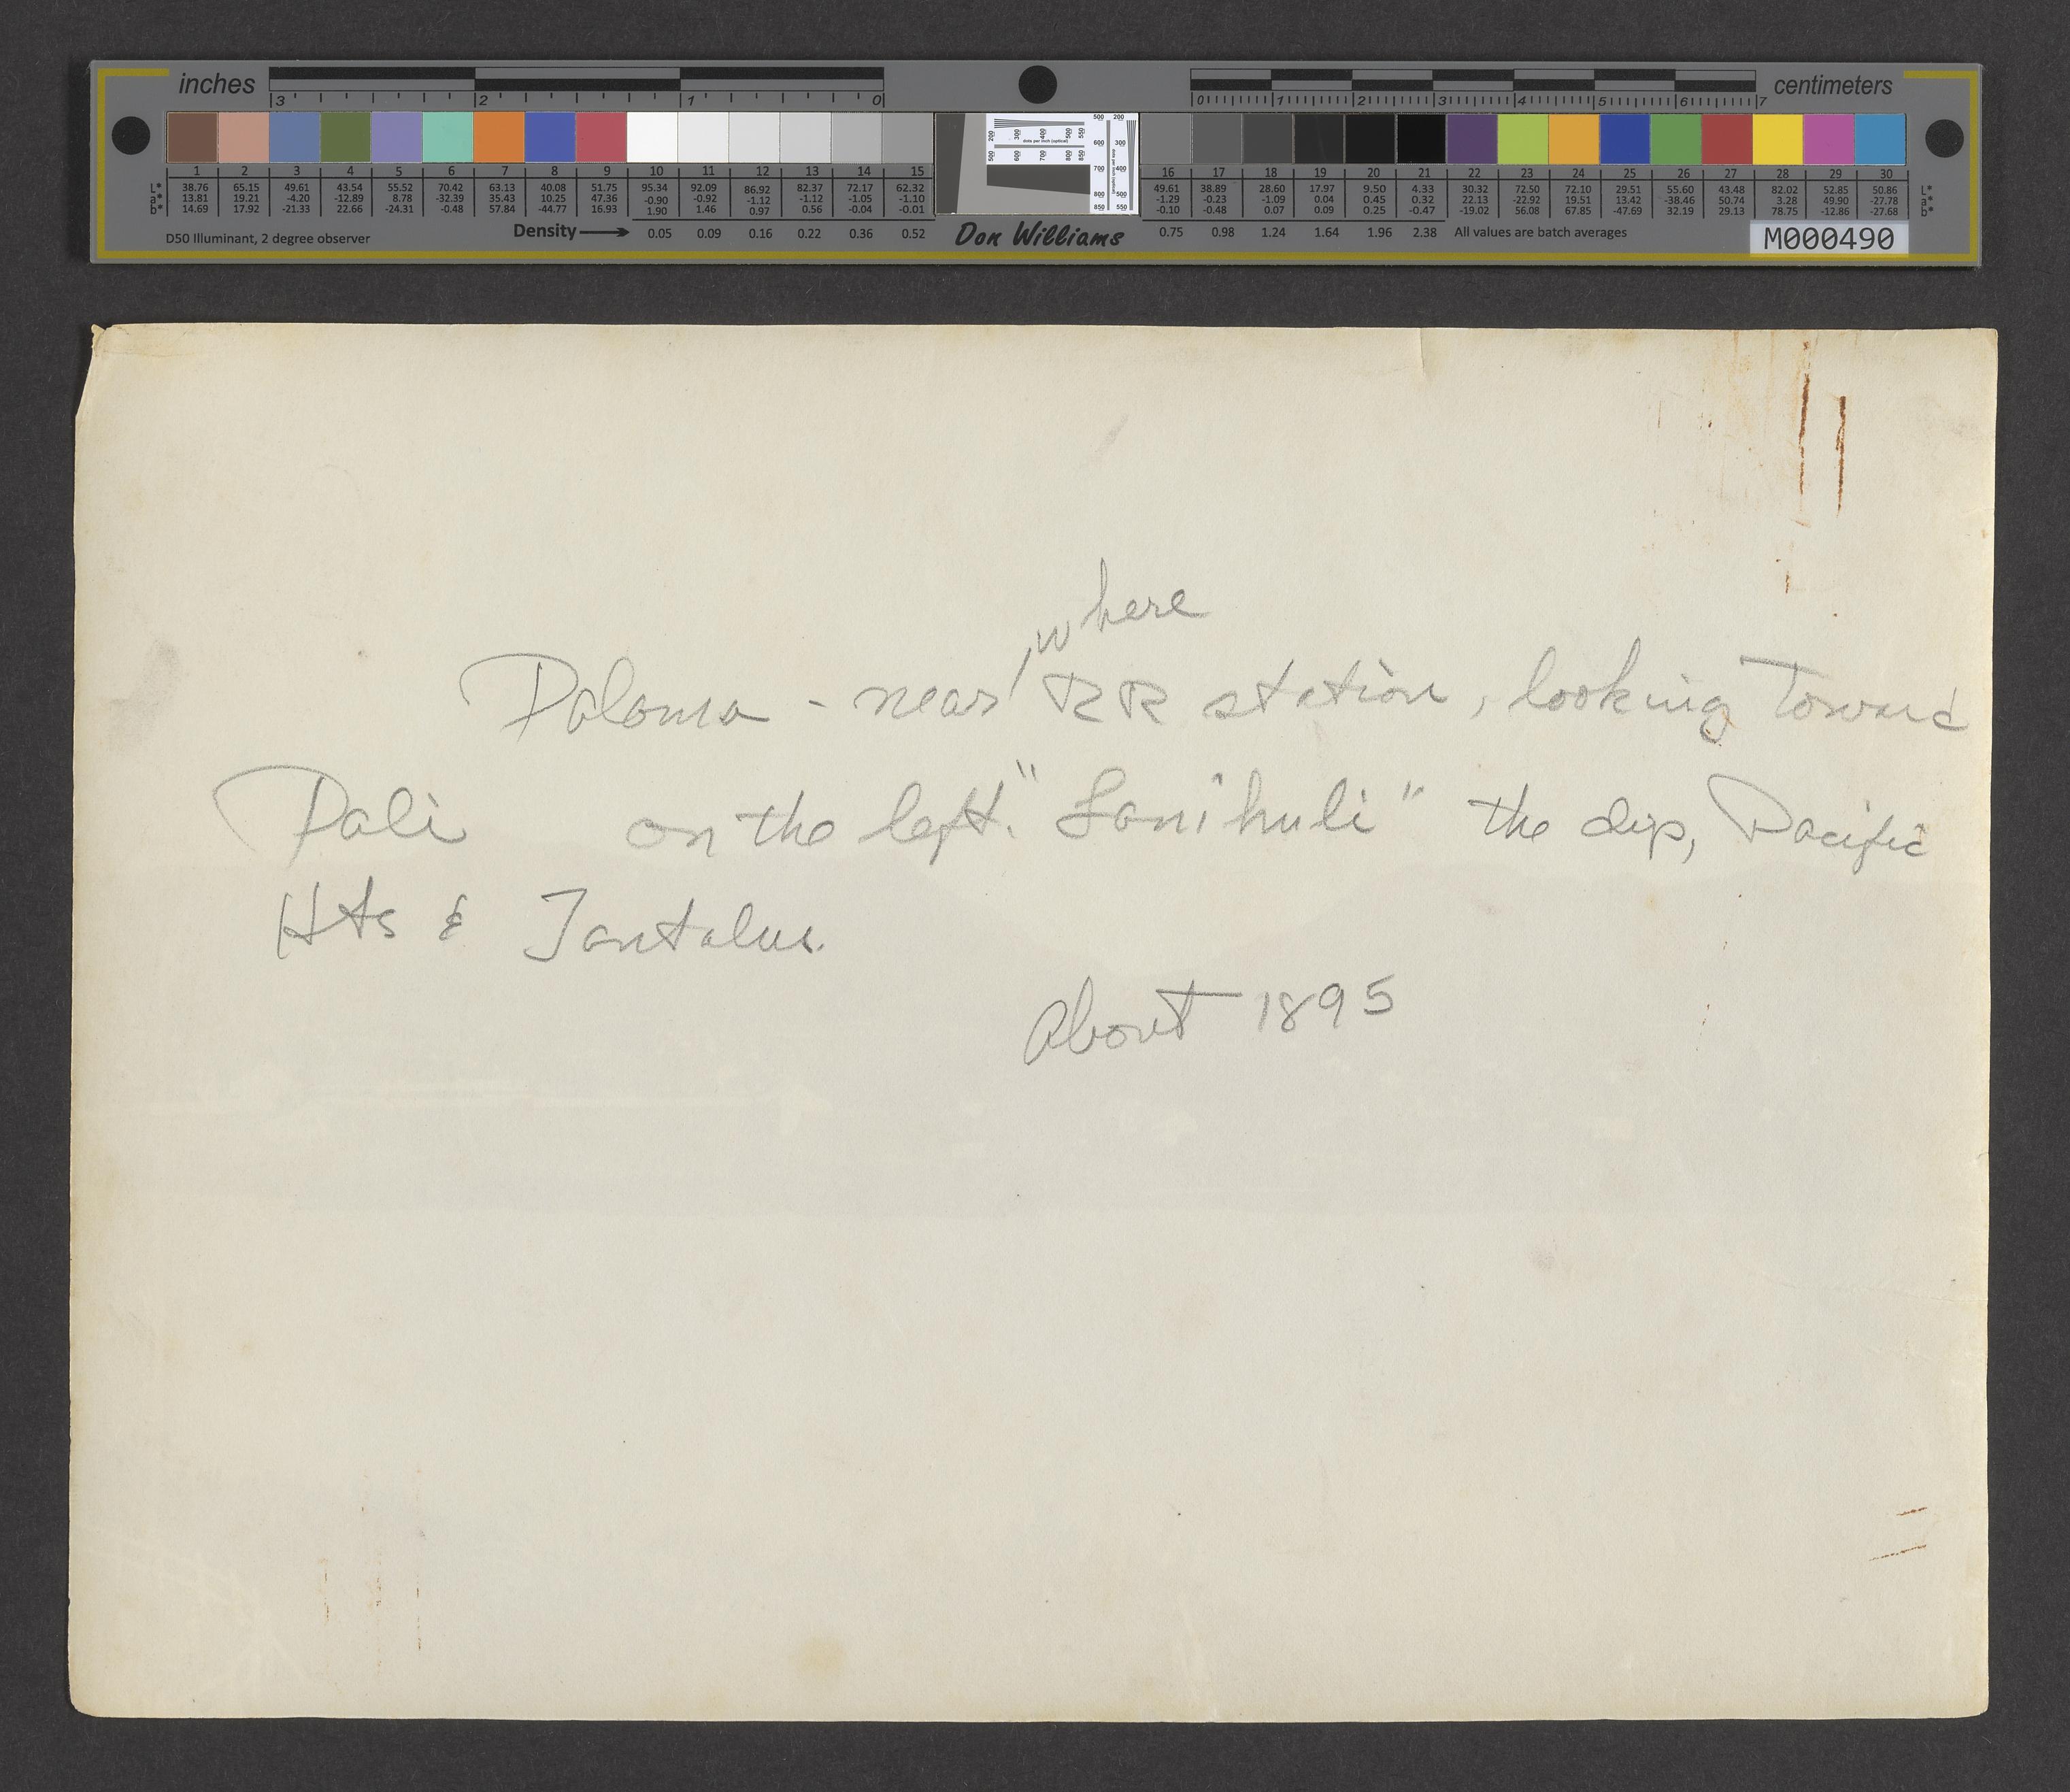 inches
centimeters
3 2 1 0
0 1 2 3 4 5 6 7
1 2 3 4 5 6 7 8 9 10 11 12 13 14 15
16 17 18 19 20 21 22 23 24 25 26 27 28 29 30
L* 38.76 65.15 49.61 43.54 55.52 70.42 63.13 40.08 51.75 95.34 92.09 86.92 82.37 72.17 62.32
a* 13.81 19.21 -4.20 -12.89 8.78 -32.39 35.43 10.25 47.36 -0.90 -0.92 -1.12 -1.12 -1.05 -1.10
b* 14.69 17.92 -21.33 22.66 -24.31 -0.48 57.84 -44.77 16.93 1.90 1.46 0.97 0.56 -0.04 -0.01
49.61 38.89 28.60 17.97 9.50 4.33 30.32 72.50 72.10 29.51 55.60 43.48 82.02 52.85 50.86 L*
-1.29 -0.23 -1.09 0.04 0.45 0.32 22.13 -22.92 19.51 13.42 -38.46 50.74 3.28 49.90 -27.78 a*
-0.10 -0.48 0.07 0.09 0.25 -0.47 -19.02 56.08 67.85 -47.69 32.19 29.13 78.75 -12.86 -27.68 b*
D50 Illuminant, 2 degree observer
Density 0.05 0.09 0.16 0.22 0.36 0.52
Don Williams
0.75 0.98 1.24 1.64 1.96 2.38 All values are batch averages
M000490
where
Palama - near RR station, looking Toward
Pali on the left. "Lanihuli" the dip, Pacific
Hts & Tantalus.
About 1895